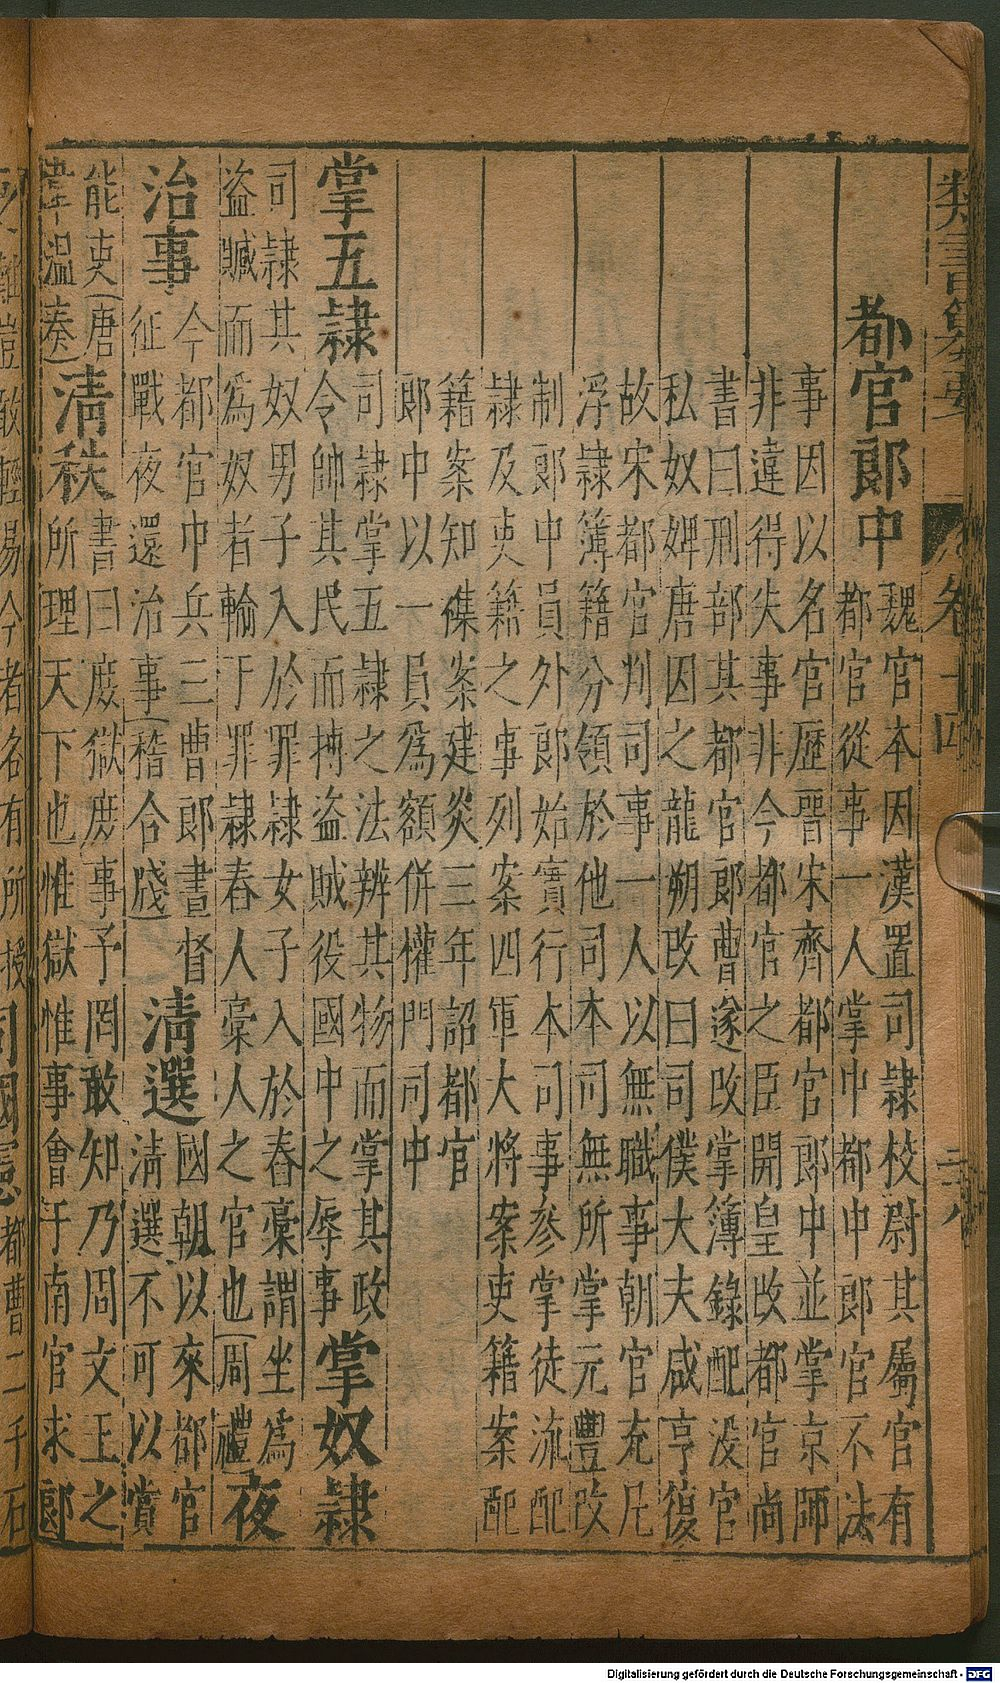 類書纂要 卷十四
都官郎中
魏官本因漢置司隸校尉其屬官有
都官從事一人掌中都中郎官不法
事因以名官歷晉宋齊都官郎中並掌京師
非違得失事非今都官之臣開皇改都官尚
書曰刑部其都官郎曹遂改掌簿錄配沒官
私奴婢唐因之龍朔改曰司僕大夫咸亨復
故宋都官判司事一人以無職事朝官充凡
浮隸簿籍分領於他司本司無所掌元豐改
制郎中員外郎始實行本司事參掌徒流配
隸及吏籍之事列案四軍大將案吏籍案配
籍案知雜案建炎三年詔都官
郎中以一員為額併權門司中
掌五隸
司隸掌五隸之法辨其物而掌其政
令帥其民而搏盜賊役國中之辱事
掌奴隸
司隸其奴男子入於罪隸女子入於舂藁謂坐為
盜贓而為奴者輸于罪隸舂人藁人之官也(周禮)
夜
治事
今都官中兵三曹郎晝督
征戰夜還治事(稽合牋)
清選
國朝以來都官
清選不可以賞
能吏(唐
韋溫奏)
清秩
書曰庶獄庶事予罔敢知乃周文王之
所理天下也惟獄惟事會于南官求郎
雖豈敢輕易今者名有所授
司國憲
都曹二千石
Digitalisierung gefördert durch die Deutsche Forschungsgemeinschaft - DFG